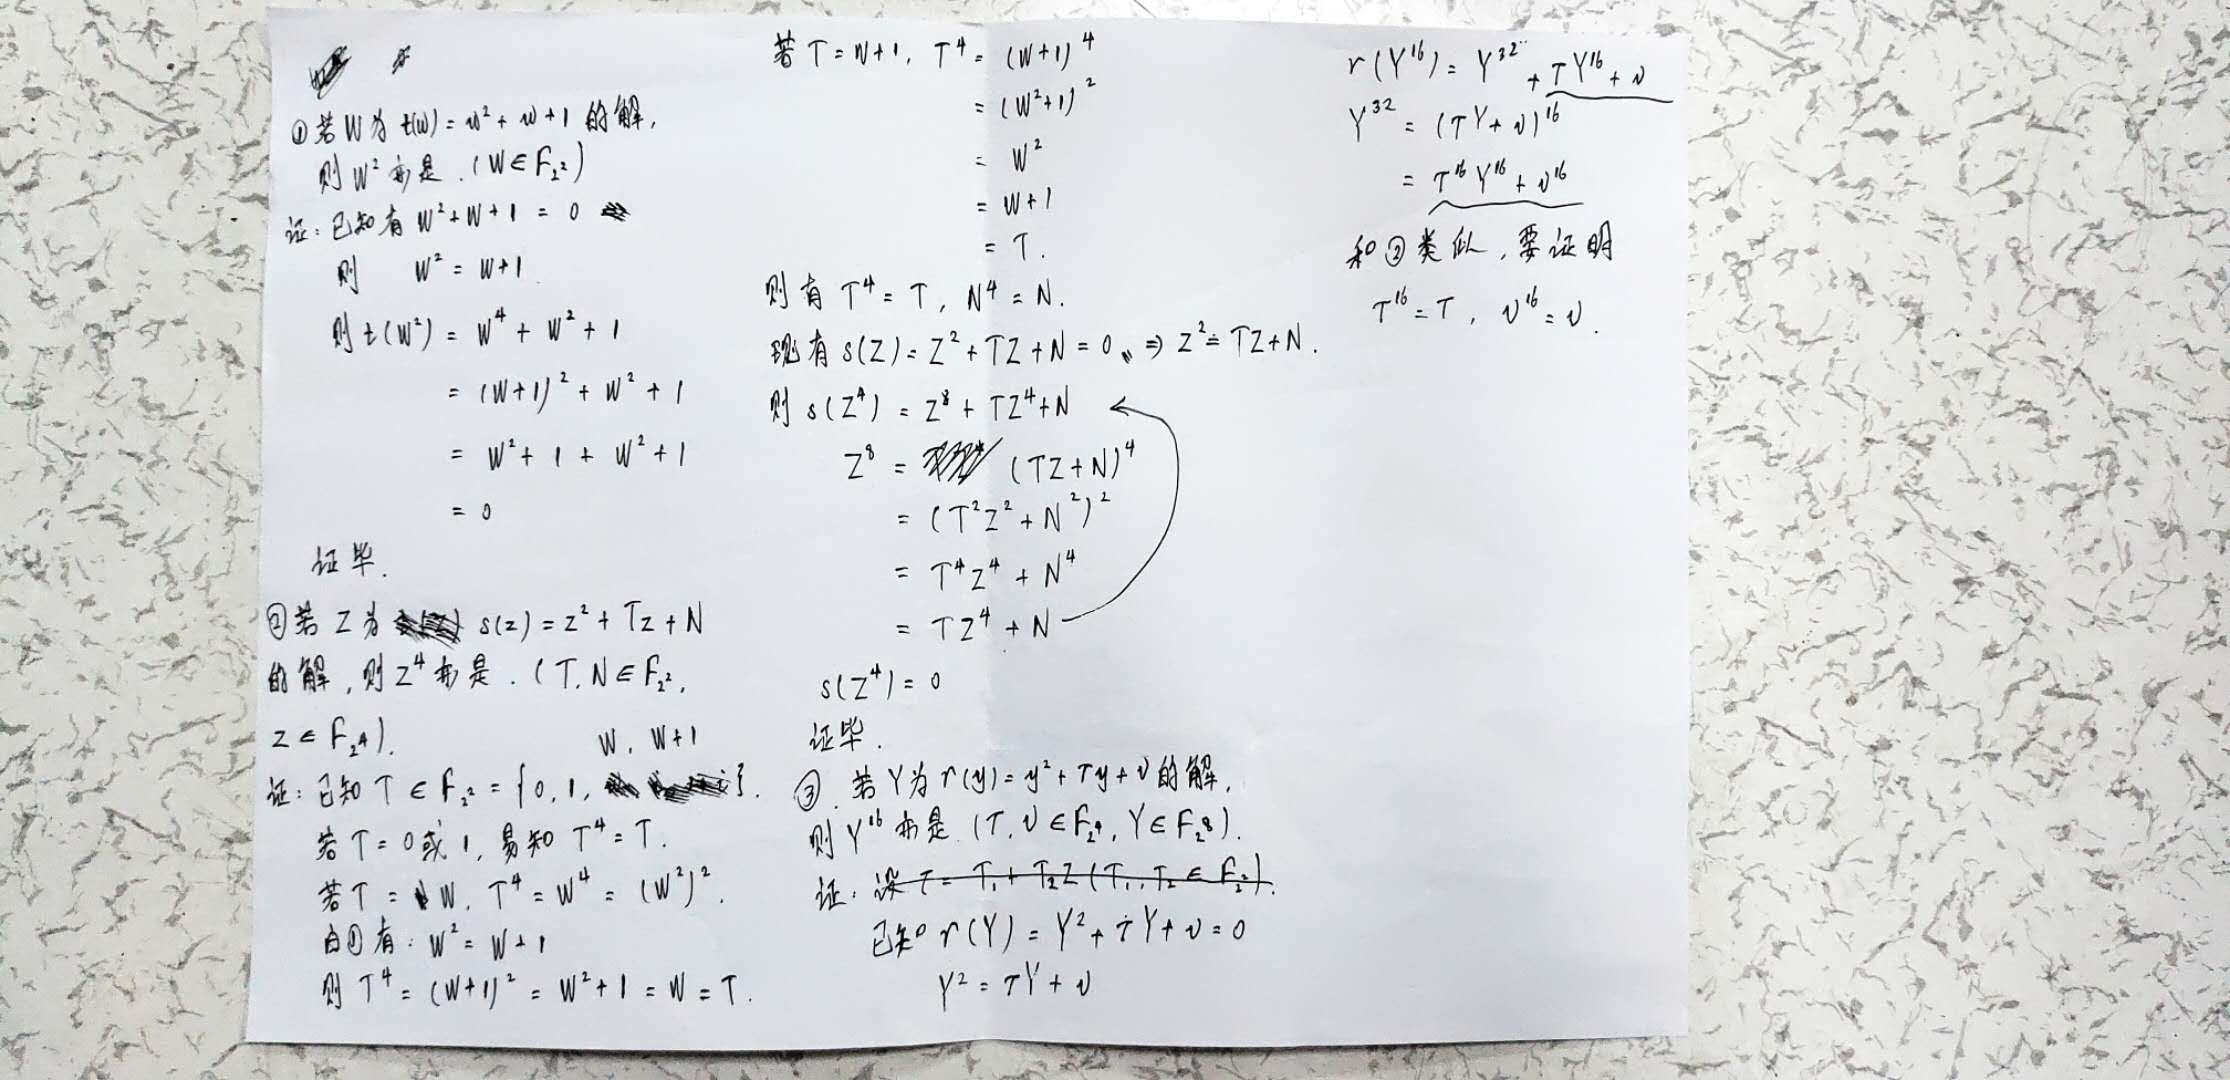 ①若W为 t(w) = w² + w + 1 的解，
则 W² 亦是．(W ∈ F₂²)
证：已知有 W² + W + 1 = 0
则 W² = W+1．
则 t(W²) = W⁴ + W² + 1
= (W+1)² + W² + 1
= W² + 1 + W² + 1
= 0
证毕．
②若 Z 为 s(z) = z² + Tz + N
的解，则 Z⁴ 亦是．(T, N ∈ F₂²,
Z ∈ F₂⁴)．
W, W+1
证：已知 T ∈ F₂² = {0, 1, }．
若 T = 0 或 1，易知 T⁴ = T．
若 T = W, T⁴ = W⁴ = (W²)²．
由①有：W² = W+1
则 T⁴ = (W+1)² = W² + 1 = W = T．
若 T = W+1, T⁴ = (W+1)⁴
= (W²+1)²
= W²
= W+1
= T．
则有 T⁴ = T, N⁴ = N．
现有 s(Z) = Z² + TZ + N = 0, ⇒ Z² = TZ+N．
则 s(Z⁴) = Z⁸ + TZ⁴ + N
Z⁸ = (TZ+N)⁴
= (T²Z² + N²)²
= T⁴Z⁴ + N⁴
= TZ⁴ + N
s(Z⁴) = 0
证毕．
③．若Y为 r(y) = y² + τy + ν 的解，
则 Y¹⁶ 亦是．(τ, ν ∈ F₂⁴, Y ∈ F₂⁸)．
证：设 τ = T₁ + T₂Z (T₁, T₂ ∈ F₂²)．
已知 r(Y) = Y² + τY + ν = 0
Y² = τY + ν
r(Y¹⁶) = Y³² + τY¹⁶ + ν
Y³² = (τY + ν)¹⁶
= τ¹⁶Y¹⁶ + ν¹⁶
和②类似，要证明
τ¹⁶ = τ, ν¹⁶ = ν．